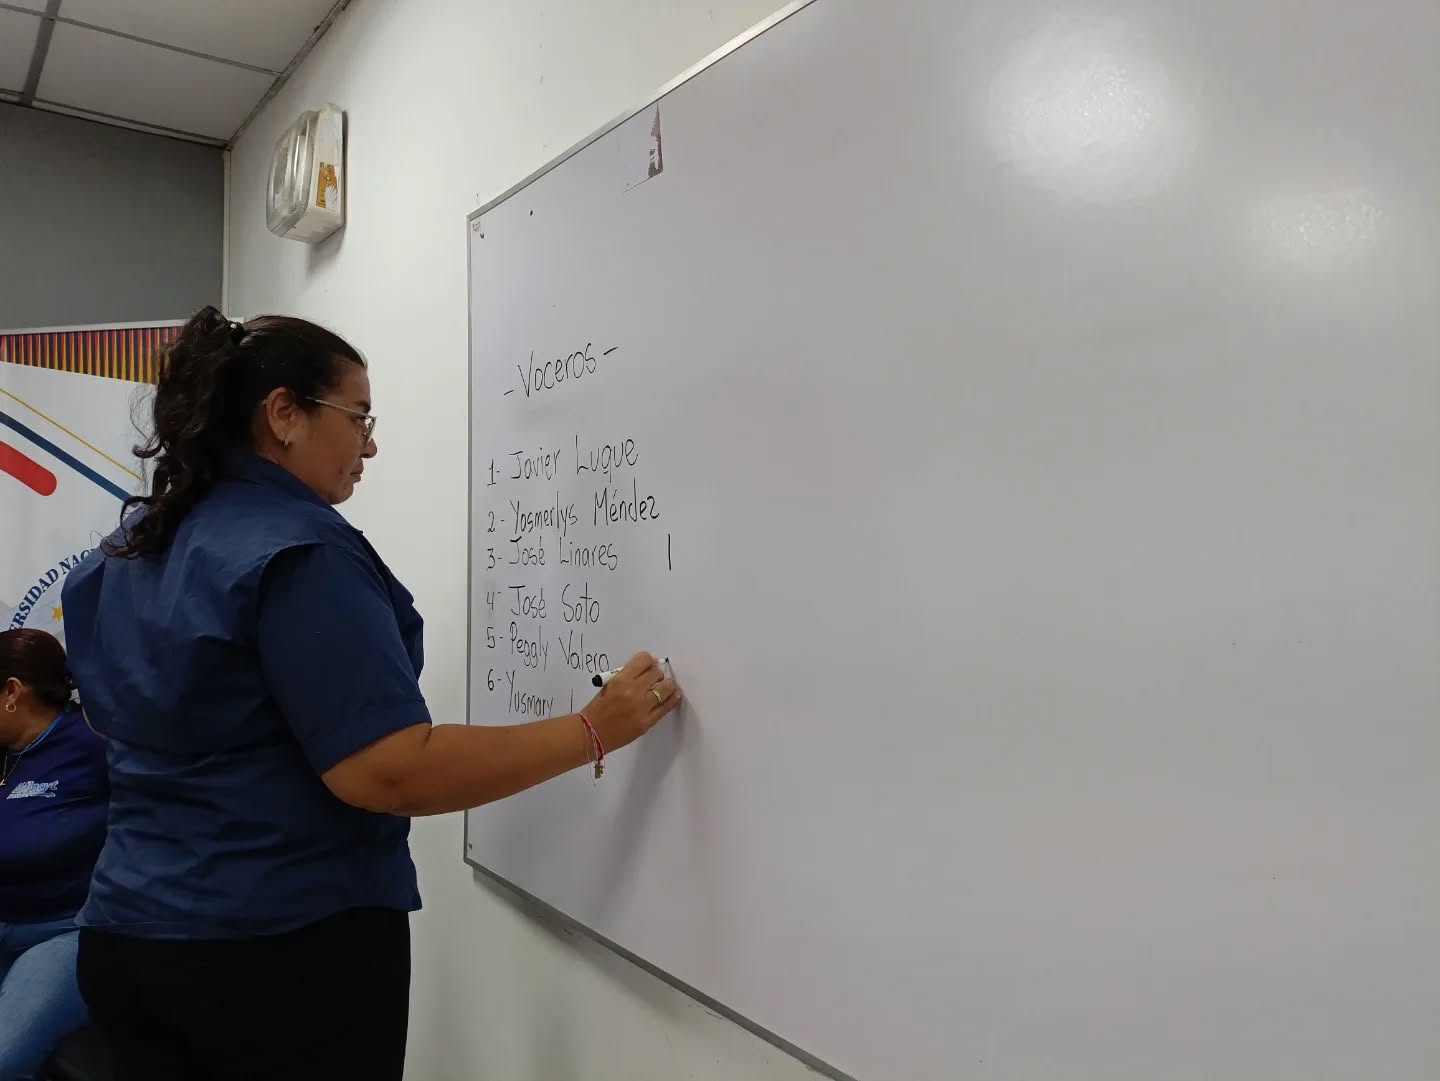 - Voceros -
1- Javier Luque
2- Yosmerlys Méndez
3- José Linares |
4- José Soto
5- Peggly Valera
6- Yusmary
ERSIDAD NAC